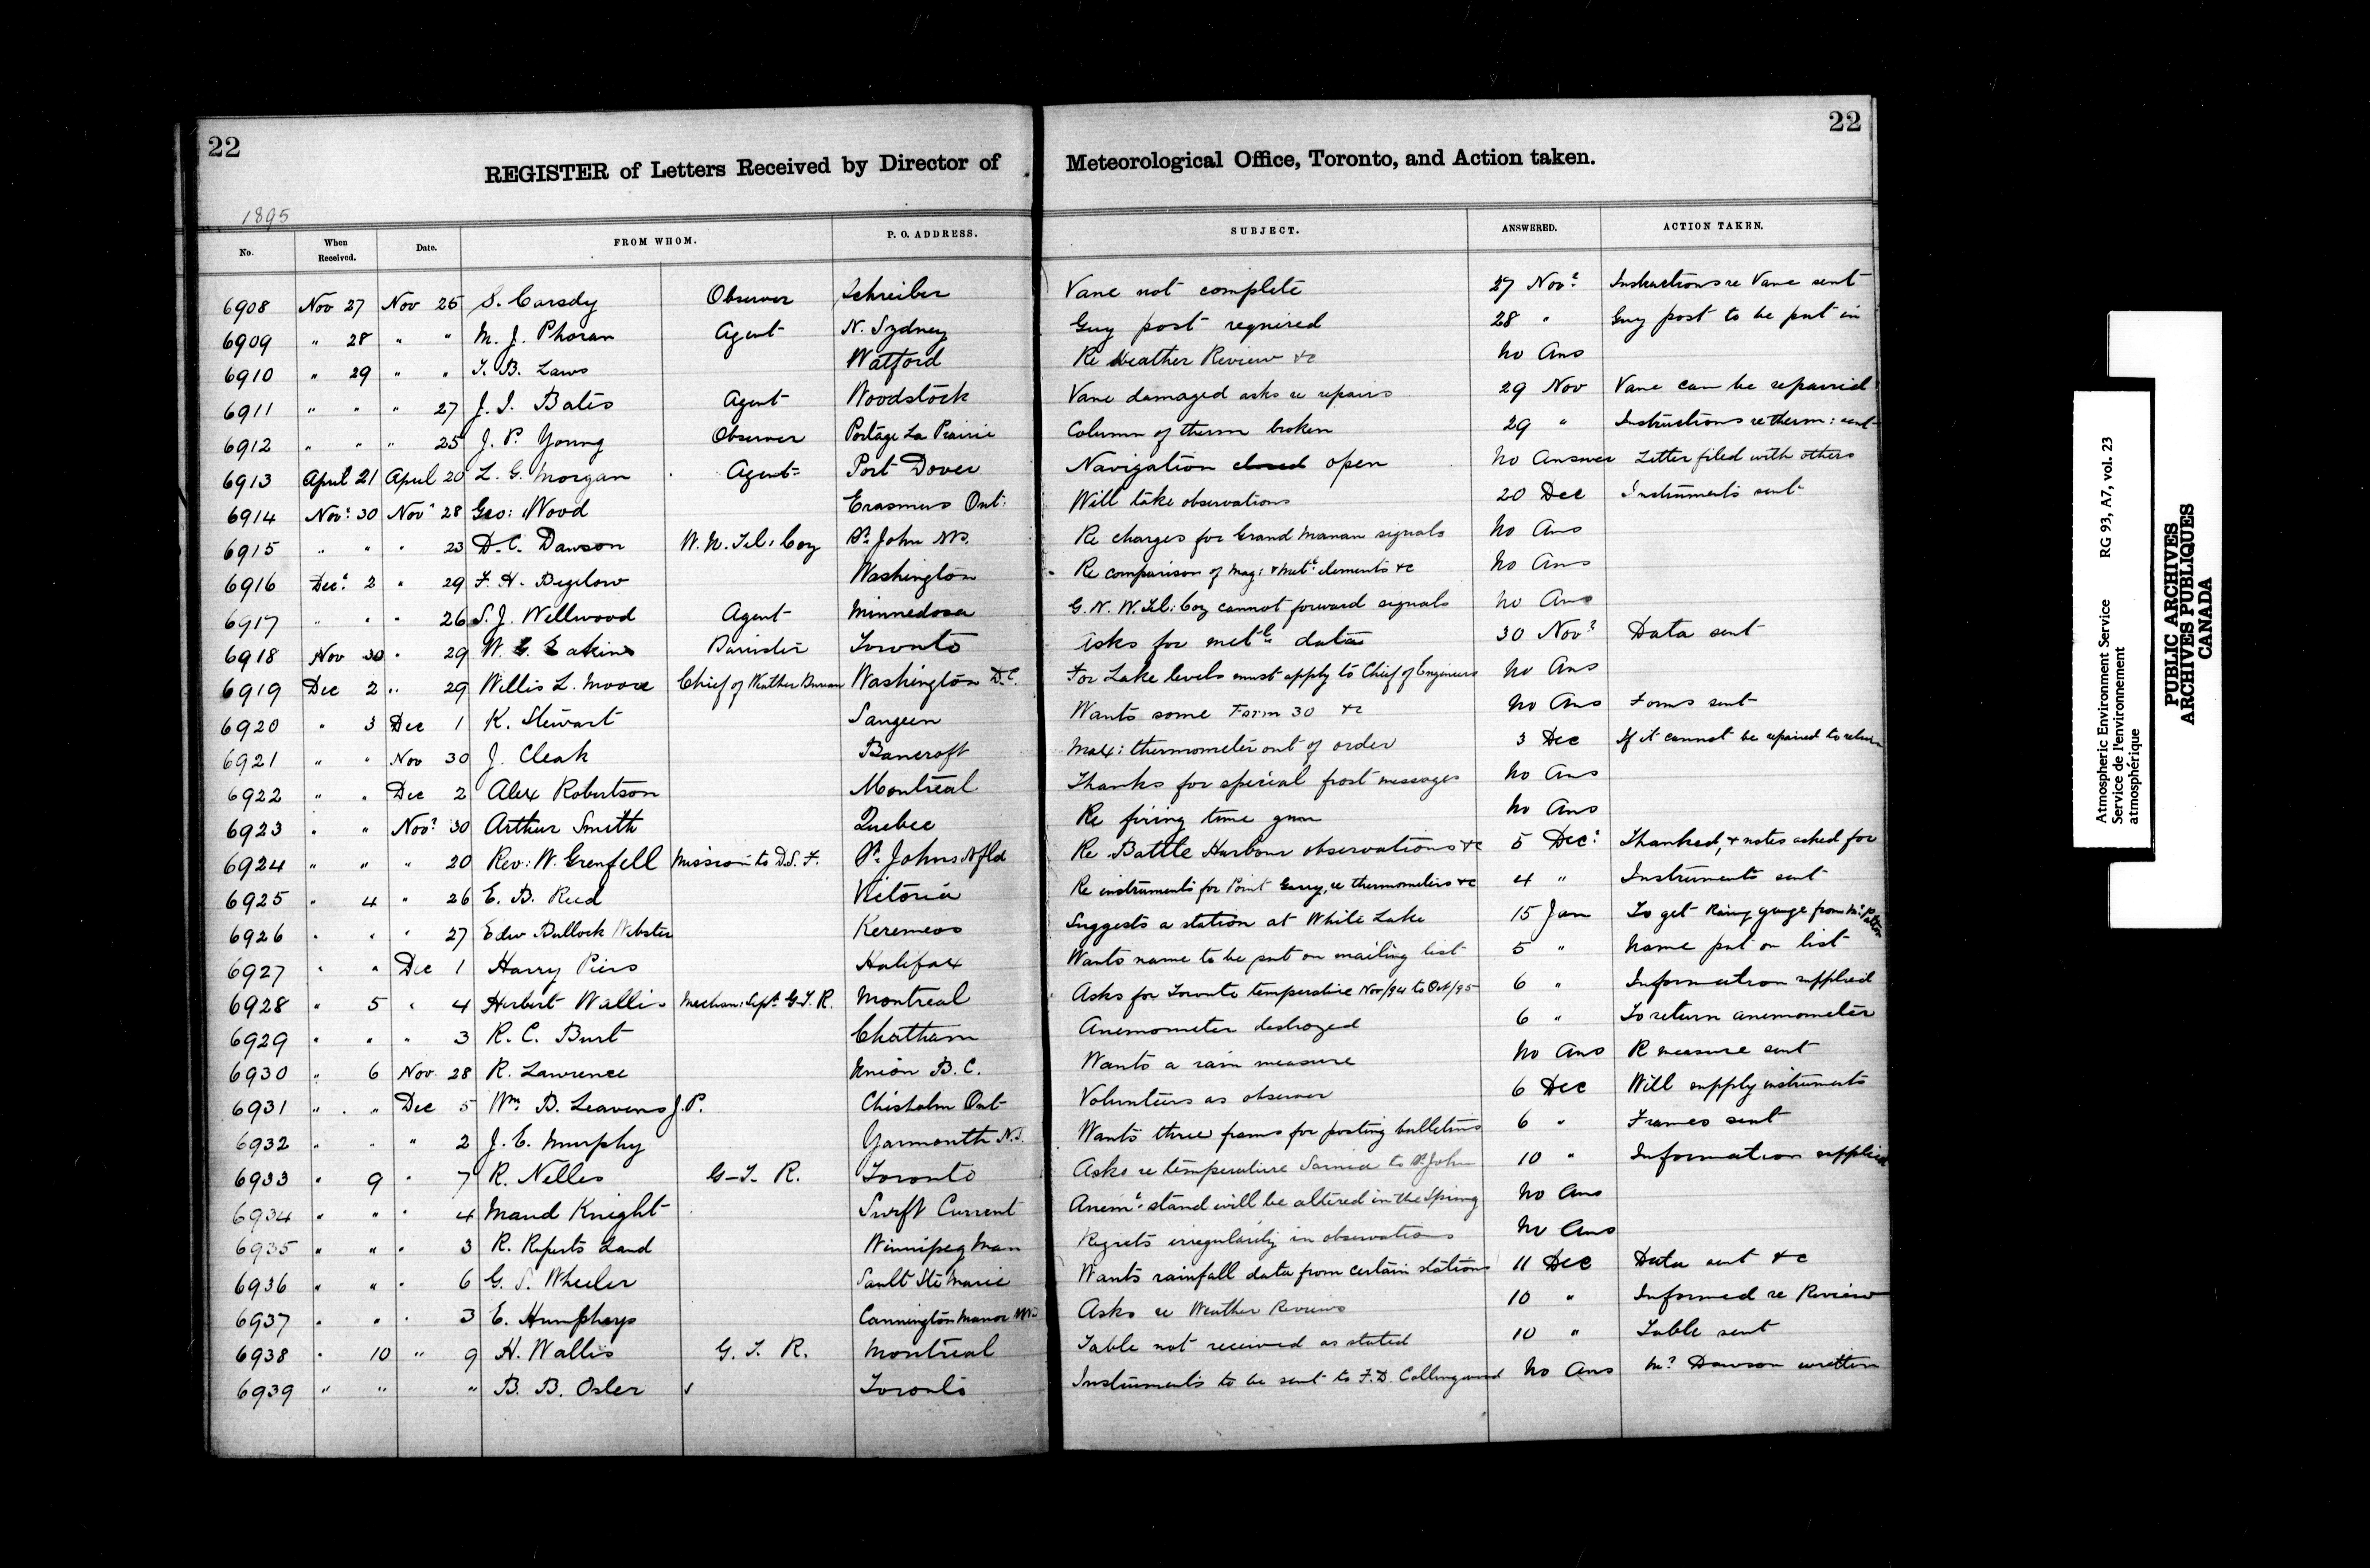 22
22
REGISTER of Letters Received by Director of Meteorological Office, Toronto, and Action taken.
1895
No. When Received. Date. FROM WHOM. P. O. ADDRESS. SUBJECT. ANSWERED. ACTION TAKEN.
6908 Nov 27 Nov 25 S. Carsdy Observer Schreiber Vane not complete 27 Novr Instructions re Vane sent
6909 " 28 " " M. J. Phoran Agent N. Sydney Guy post required 28 " Guy post to be put in
6910 " 29 " " T. B. Laws Watford Re Weather Review &c No Ans
6911 " " " 27 J. I. Bates Agent Woodstock Vane damaged asks re repairs 29 Nov Vane can be repaired
6912 " " " 25 J. P. Young Observer Portage La Prairie Column of therm broken 29 " Instructions re therm: sent
6913 April 21 April 20 L. G. Morgan Agent Port Dover Navigation closed open No Answer Letter filed with others
6914 Novr 30 Novr 28 Geo: Wood Erasmus Ont: Will take observations 20 Dec Instruments sent
6915 " " " 23 D. C. Dawson W. U. Tel: Coy St John NB. Re charges for Grand Manan signals No Ans
6916 Decr 2 " 29 F. H. Bigelow Washington Re comparison of Mag: & Metl elements &c No Ans
6917 " " " 26 S. J. Wellwood Agent Minnedosa G. N. W. Tel: Coy cannot forward signals No Ans
6918 Nov 30 " 29 W. G. Eakins Barrister Toronto Asks for metl data 30 Novr Data sent
6919 Dec 2 " 29 Willis L. Moore Chief of Weather Bureau Washington D.C. For Lake levels must apply to Chief of Engineers No Ans
6920 " 3 Dec 1 K. Stewart Saugeen Wants some Form 30 &c No Ans Forms sent
6921 " " Nov 30 J. Cleak Bancroft Max: thermometer out of order 3 Dec If it cannot be repaired to return
6922 " " Dec 2 Alex Robertson Montreal Thanks for special frost messages No Ans
6923 " " Novr 30 Arthur Smith Quebec Re firing time gun No Ans
6924 " " " 20 Rev: W. Grenfell Mission to D.S. F. St Johns Nfld Re Battle Harbour observations &c 5 Decr Thanked, & notes asked for
6925 " 4 " 26 E. B. Reed Victoria Re instruments for Point Garry, re thermometers &c 4 " Instruments sent
6926 " " " 27 Edw Bullock Webster Keremeos Suggests a station at White Lake 15 Jan To get Raing gauge from Mr
6927 " " Dec 1 Harry Piers Halifax Wants name to be put on mailing list 5 " Name put on list
6928 " 5 " 4 Herbert Wallis Mechan: Supt G.T.R. Montreal Asks for Toronto temperature Nov/94 to Oct/95 6 " Information supplied
6929 " " " 3 R. C. Burt Chatham Anemometer destroyed 6 " To return anemometer
6930 " 6 Nov 28 R. Lawrence Union B. C. Wants a rain measure No Ans R measure sent
6931 " " Dec 5 Wm B. Leavens J.P. Chisholm Ont Volunteers as observer 6 Dec Will supply instruments
6932 " " " 2 J. E. Murphy Yarmouth N.S. Wants three frams for posting bulletins 6 " Frames sent
6933 " 9 " 7 R. Nelles G.T. R. Toronto Asks re temperature Sarnia to St John 10 " Information supplied
6934 " " " 4 Maud Knight Swift Current Anemr stand will be altered in the Spring No Ans
6935 " " " 3 R. Ruperts Land Winnipeg Man Regrets irregularity in observations No Ans
6936 " " " 6 G. S. Wheeler Sault Ste Marie Wants rainfall data from certain stations 11 Dec Data sent &c
6937 " " " 3 E. Humphrys Cannington Manor Asks re Weather Reviews 10 " Informed re Review
6938 " 10 " 9 H. Wallis G. T. R. Montreal Table not received as stated 10 " Table sent
6939 " " " B. B. Osler Toronto Instruments to be sent to F.D. Collingwood No Ans Mr Dawson written
Atmospheric Environment Service RG 93, A7, vol. 23
Service de l'environement
atmosphérique
PUBLIC ARCHIVES
ARCHIVES PUBLIQUES
CANADA